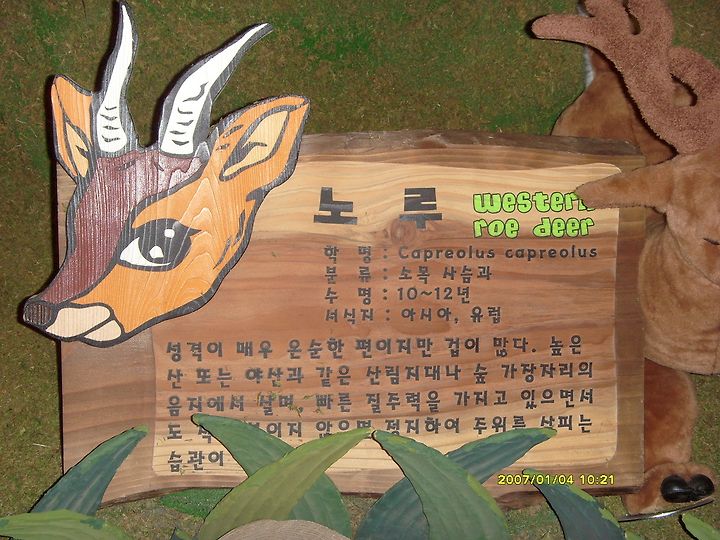 노 루
western
roe deer
학 명 : Capreolus capreolus
분 류 : 소목 사슴과
수 명 : 10~12년
서식지 : 아시아, 유럽
성격이 매우 온순한 편이지만 겁이 많다. 높은
산 또는 야산과 같은 산림지대나 숲 가장자리의
음지에서 살며 빠른 질주력을 가지고 있으면서
도 않으면 정지하여 주위를 살피는
습관이
2007/01/04 10:21